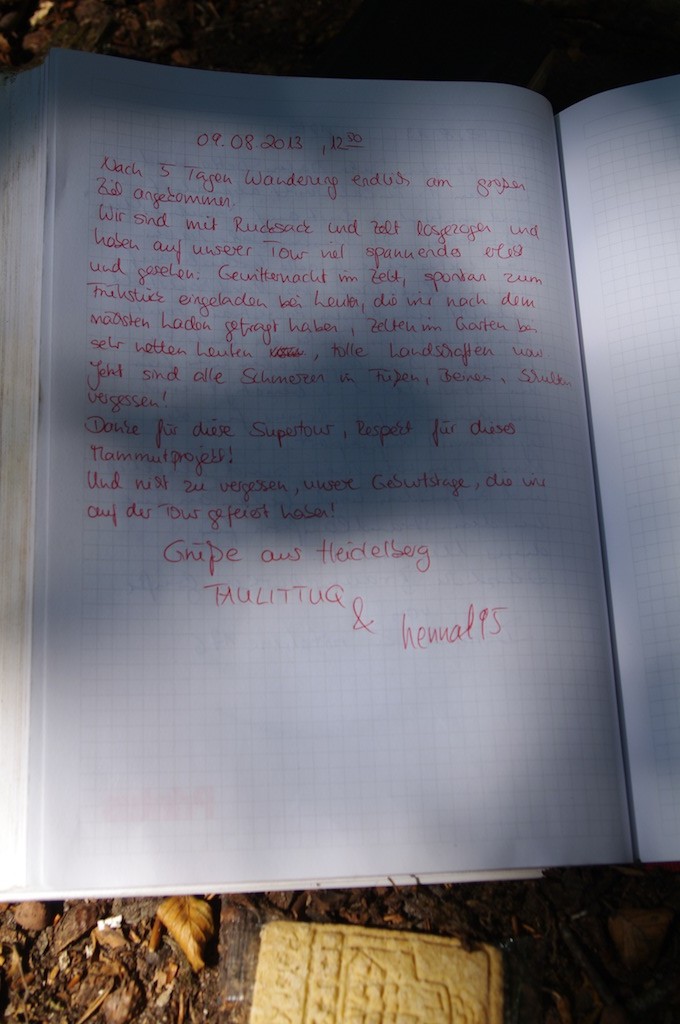 09.08.2013, 12³⁰
Nach 5 Tagen Wanderung endlich am großen
Ziel angekommen.
Wir sind mit Rucksack und Zelt losgezogen und
haben auf unserer Tour viel spannendes erlebt
und gesehen: Gewitternacht im Zelt, spontan zum
Frühstück eingeladen bei Leuten, die wir nach dem
nächsten Laden gefragt haben, Zelten im Garten bei
sehr netten Leuten, tolle Landschaften usw
Jetzt sind alle Schmerzen in Füßen, Beinen, Schultern
vergessen!
Danke für diese Supertour, Respekt für dieses
Mammutprojekt!
Und nicht zu vergessen, unsere Geburtstage, die wir
auf der Tour gefeiert haben!
Grüße aus Heidelberg
TAULITTUQ
&
hennal95